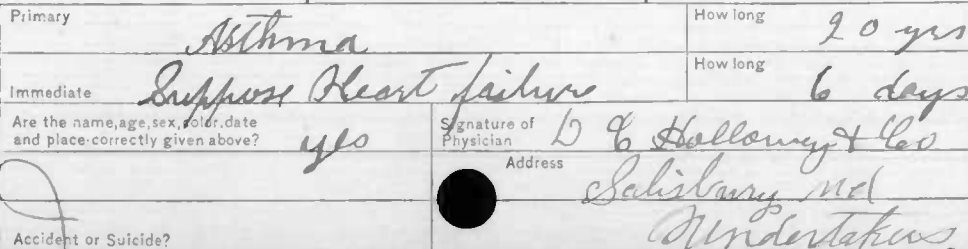 Primary Asthma How long 20 yrs
Immediate Suppose Heart failure How long 6 days
Are the name, age, sex, color. date and place correctly given above? yes
Signature of Physician D C Holloway & Co
Address Salisbury Md
Accident or Suicide? Undertakers